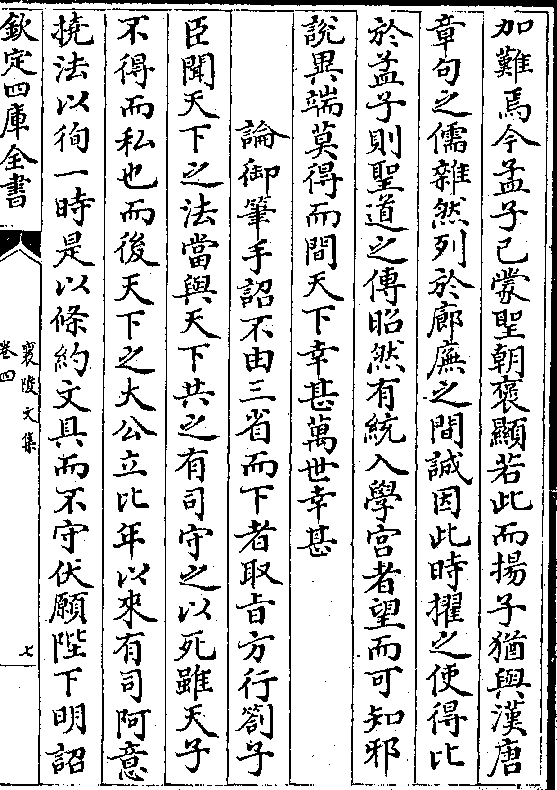 加難焉今孟子已蒙聖朝褒顯若此而揚子猶與漢唐
章句之儒雜然列於廊廡之間誠因此時擢之使得比
於孟子則聖道之傳昭然有統入學宮者望而可知邪
說異端莫得而間天下幸甚萬世幸甚
論御筆手詔不由三省而下者取旨方行劄子
臣聞天下之法當與天下共之有司守之以死雖天子
不得而私也而後天下之大公立比年以來有司阿意
撓法以徇一時是以條約文具而不守伏願陛下明詔
欽定四庫全書
襄陵文集
卷四
七